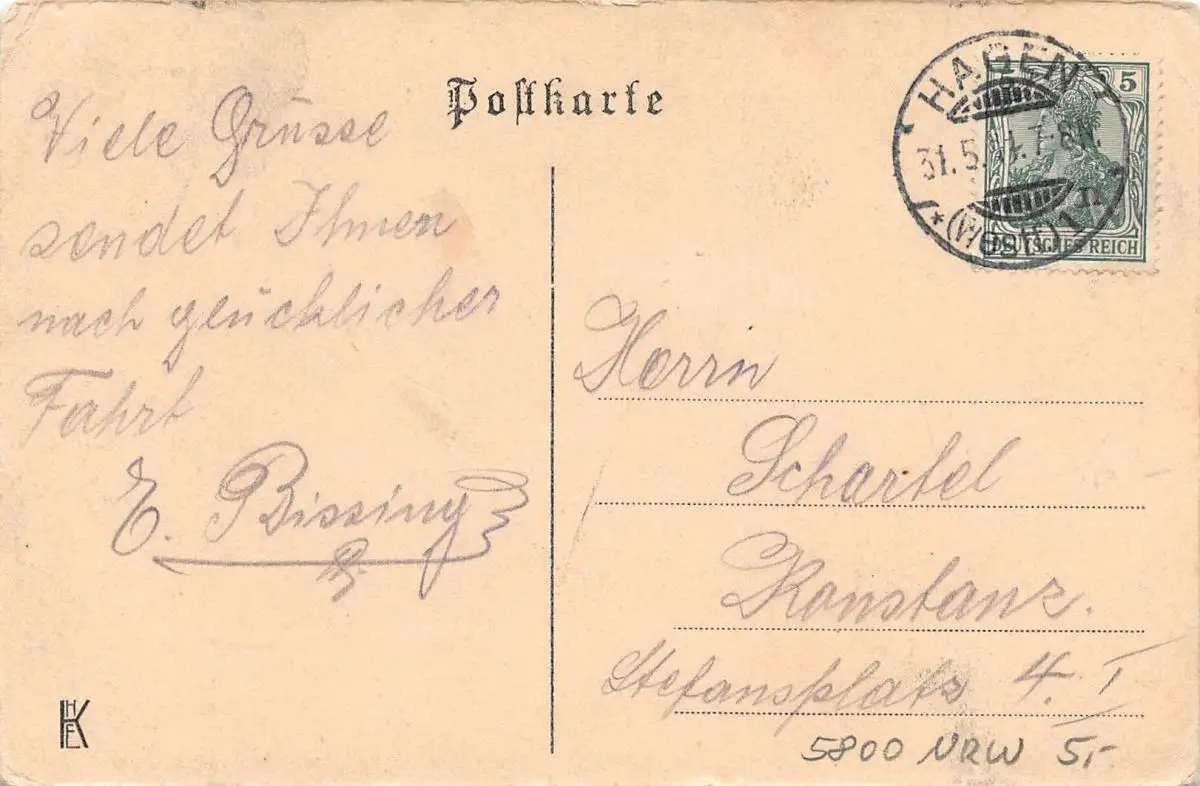 Postkarte
Viele Grüsse
sendet Ihnen
nach glücklicher
Fahrt
E. Bissing
HAGEN
31.5. 7-8N.
*(Westf)1n
5
DEUTSCHES REICH
Herrn
Schartel
Konstanz.
Stefansplatz 4. I
5800 NRW 5,-
HKFE